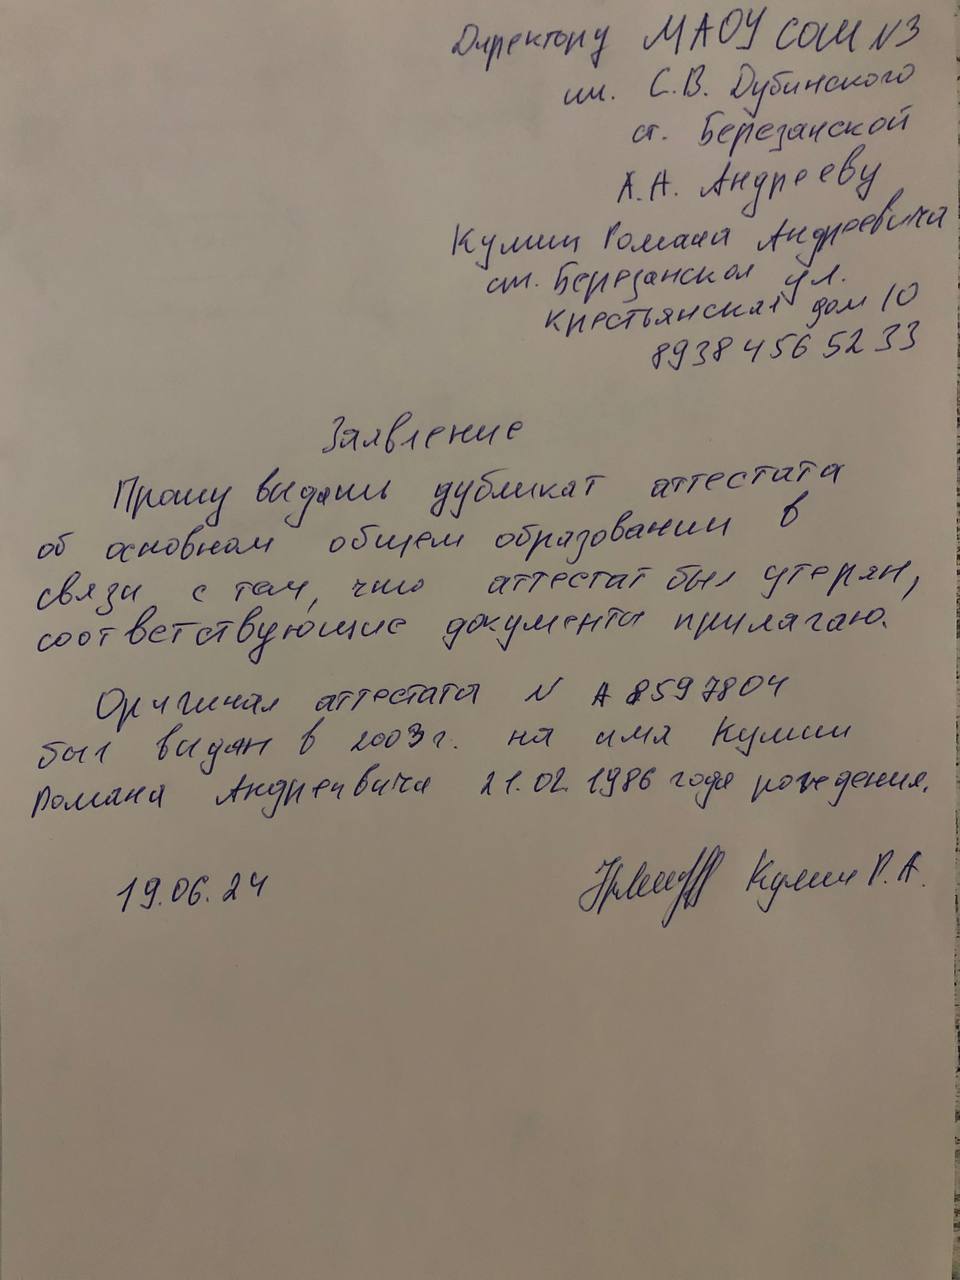 Директору МАОУ СОШ N3
им. С.В. Дубинского
ст. Березанской
А.А. Андрееву
Кумин Романа Андреевича
ст. Березанская ул.
Крестьянская дом 10
8938 456 52 33
Заявление
Прошу выдать дубликат аттестата
об основном общем образовании в
связи с тем, что аттестат был утерян,
соответствующие документы прилагаю.
Оригинал аттестата N А 8597804
был выдан в 2003 г. на имя Кумин
Романа Андреевича 21.02.1986 года рождения.
19.06.24 Кумин Р.А.